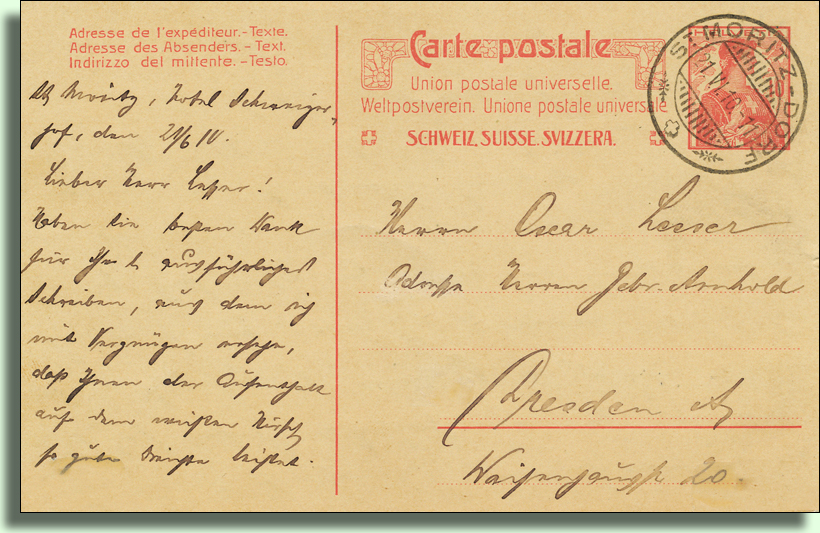 Adresse de l'expéditeur.-Texte.
Adresse des Absenders. - Text.
Indirizzo del mittente. -Testo.
Carte postale
Union postale universelle.
Weltpostverein. Unione postale universale
SCHWEIZ. SUISSE. SVIZZERA.
ST MORITZ-DORF
21.VI.10
St. Moritz, Hotel Schweizer-
hof, den 21/6 10.
Lieber Herr Lesser!
Haben Sie besten Dank
für Ihr l. ausführliches
Schreiben, aus dem ich
mit Vergnügen ersehe,
daß Ihnen der Aufenthalt
auf dem weißen Hirsch
so gute Dienste leistet.
Herrn Oscar Lesser
Adresse Herren Gebr. Arnhold
Dresden A/
Waisenhausstr 20.